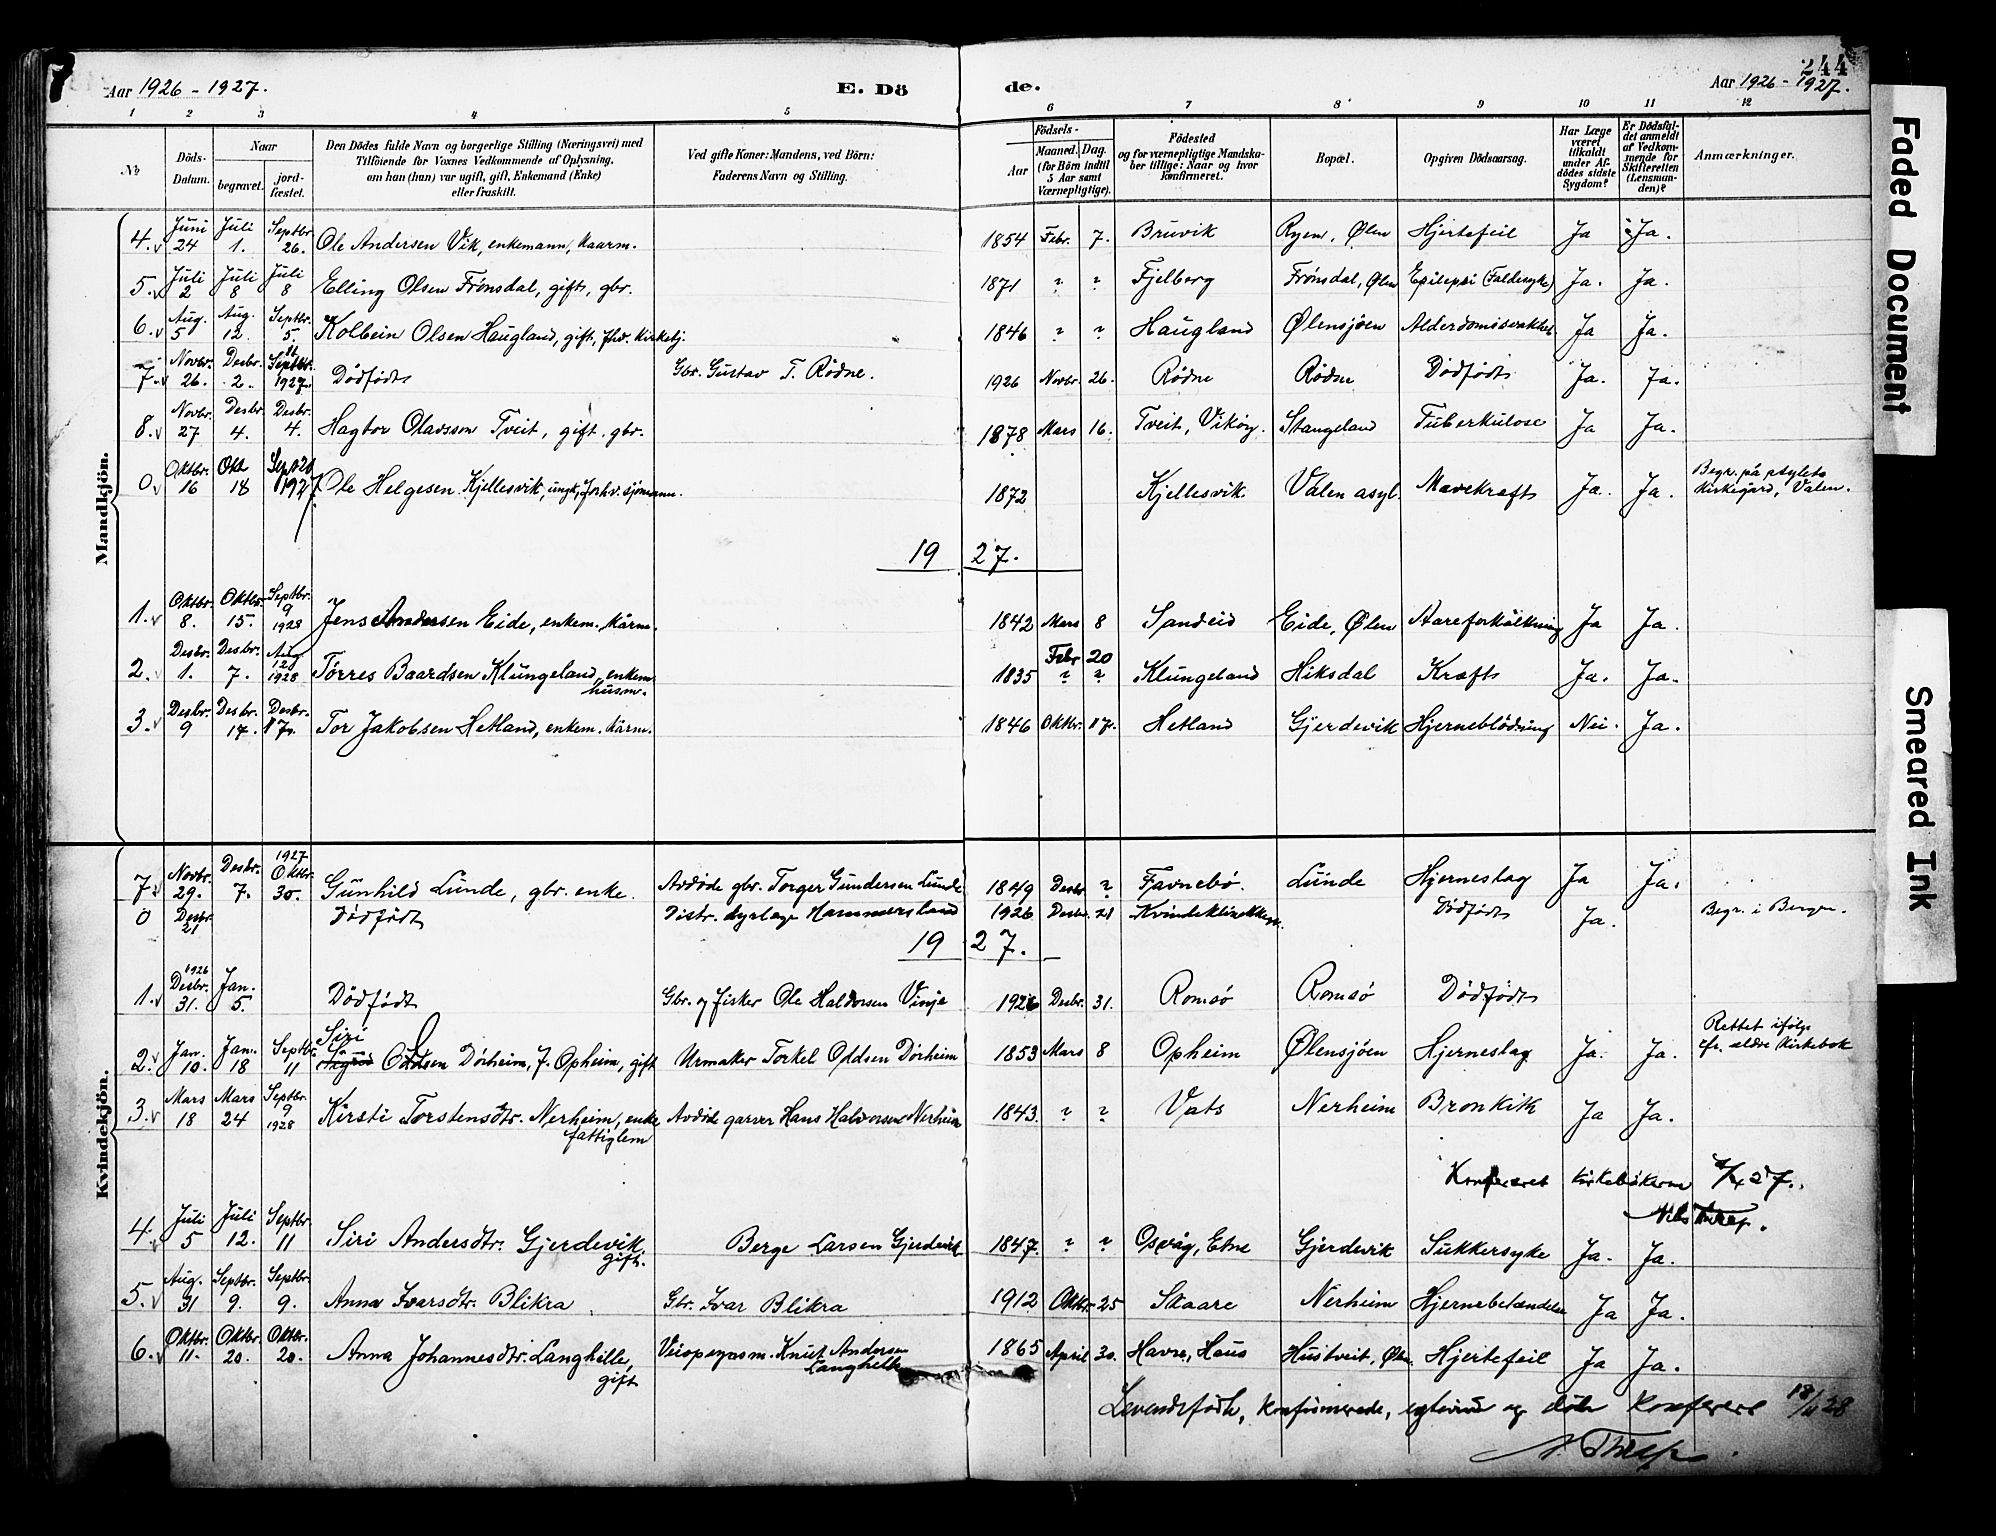 Aar 1926 - 1927. E. Dö de. 244 Aar 1926 - 1927.
1 2 3 4 5 6 7 8 9 10 11 12
No Döds-Datum. Naar begravet. jordfæstet. Den Dödes fulde Navn og borgerlige Stilling (Næringsvei) med Tilföiende for Voxnes Vedkommende af Oplysning, om han (hun) var ugift, gift, Enkemand (Enke) eller fraskilt. Ved gifte Koner: Mandens, ved Börn: Faderens Navn og Stilling. Födsels- Aar Maaned. Dag. (for Börn indtil 5 Aar samt Værnepligtige). Födested og for værnepligtige Mandskaber tillige: Naar og hvor konfirmeret. Bopæl. Opgiven Dödsaarsag. Har Læge været tilkaldt under Afdödes sidste Sygdom? Er Dödsfaldet anmeldt af Vedkommende for Skifteretten (Lensmanden)? Anmærkninger.
Mandkjön.
4. Juni 24 Juli 1. Septbr. 26. Ole Andersen Vik, enkemann, kaarm. 1854 Febr. 7. Bruvik Ryen, Ølen Hjertefeil Ja Ja.
5. Juli 2 Juli 8 Juli 8 Elling Olsen Frønsdal, gift, gbr. 1871 ? ? Fjelberg Frønsdal, Ølen Epilepsi (Faldesyke) Ja. Ja.
6. Aug. 5 Aug. 12 Septbr. 5. Kolbein Olsen Haugland, gift, fhv. kirketj. 1846 ? ? Haugland Ølensjøen Alderdomssvakhet Ja Ja.
7. Novbr. 26. Desbr. 2. Septbr. 11 1927. Dödfödt Gbr. Gustav T. Rödne. 1926 Novbr. 26. Rödne Rödne Dödfödt Ja. Ja.
8. Novbr. 27 Desbr. 4. Desbr. 4. Hagtor Olavsson Tveit, gift. gbr. 1878 Mars 16. Tveit, Vikör. Stangeland Tuberkulose Ja Ja.
0 Oktbr. 16 Okt 18 1927 Ole Helgesen Kjellesvik, ungk., forhv. sjömann. 1872 Kjellesvik Valen asyl. Mavekræft Ja. Ja. Begr. på asylets kirkegård, Valen.
19 27.
1. Oktbr. 8. Oktbr. 15. Septbr. 9 1928 Jens Andersen Eide, enkem. kårm. 1842 Mars 8 Sandeid Eide, Ølen Aareforkalkning Ja Ja.
2. Desbr. 1. Desbr. 7. Aug 12 1928 Tørres Baardsen Klungeland, enkem. husm. 1835 Febr 20 ? ? Klungeland Hiksdal Kræft Ja. Ja.
3. Desbr. 9 Desbr. 17. Desbr. 17. Tor Jakobsen Hetland, enkem. kårm. 1846 Oktbr. 17. Hetland Gjerdevik Hjerneblödning Nei. Ja.
Kvindekjön.
7. Novbr. 29. Desbr. 7. 1927 Oktbr. 30. Gunhild Lunde, gbr. enke. Avdöde gbr. Torger Gundersen Lunde 1849 Desbr ? Favnebö. Lunde Hjerneslag Ja Ja.
0 Desbr. 21 Dödfödt Distr. dyrlæge Hammersland 1926 Desbr. 21 Kvindeklinikken. Dödfödt Ja. Begr. i Bergen.
19 27.
1. 1926 Desbr. 31. Jan. 5. Dödfödt Gbr. og fisker Ole Haldorsen Vinje 1926 Desbr. 31. Romsö Romsö Dödfödt
2. Jan. 10. Jan. 18 Septbr. 11 Siri Oddsen Dörheim, f. Opheim, gift Urmaker Torkel Oddsen Dörheim 1853 Mars 8 Opheim Ølensjöen Hjerneslag Ja. Ja. Rettet ifölge eldre kirkebok
3. Mars 18 Mars 24 Septbr. 9 1928 Kirsti Torstensdtr. Nerheim, enke fattiglem Avdöde garver Hans Halvorsen Nerheim 1843. ? ? Vats Nerheim Bronkitt Ja Ja.
Konfereret kirkebökerne 27.
4. Juli 5 Juli 12. Septbr. 11 Siri Andersdtr. Gjerdevik, gift. Berge Larsen Gjerdevik 1847. ? ? Osvåg, Etne Gjerdevik Sukkersyke Ja. Ja.
5. Aug. 31 Septbr. 9. Septbr. 9. Anna Ivarsdtr. Blikra Gbr. Ivar Blikra 1912 Oktbr. 25 Skaare Nerheim Hjernebetændelse Ja Ja.
6. Oktbr. 11. Oktbr. 20. Oktbr. 20. Anna Johannesdtr. Langhelle, gift Veiopsynsm. Knut Andersen Langhelle 1865 April 30. Havre, Haus Hustveit, Ølen. Hjertefeil Ja Ja.
Levendefödte, konfirmerede, egteviede og döde konferert 18/11 28
Faded Document
Smeared Ink